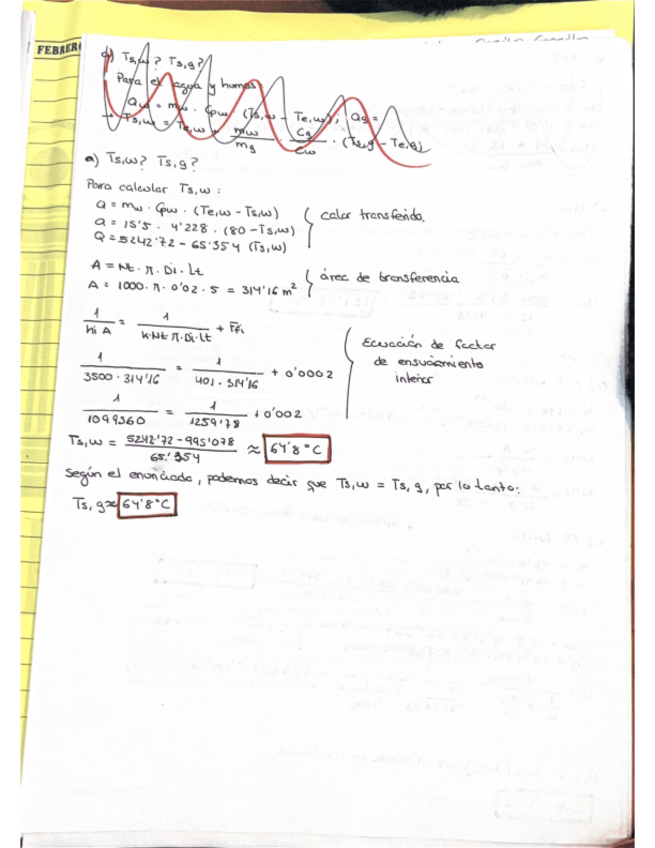 FEBRERO
a) Ts,w? Ts,g?
Para el agua y humos:
Qw = mw · Cpw · (Ts,w - Te,w); Qg =
→ Ts,w = Te,w + mw/mg · Cg/Cw · (Ts,g - Te,g)
a) Ts,w? Ts,g?
Para calcular Ts,w:
Q = mw · Cpw · (Te,w - Ts,w)
Q = 15'5 · 4'228 · (80 - Ts,w)
Q = 5242'72 - 65'354 (Ts,w)
calor transferido.
A = Nt · π · Di · Lt
A = 1000 · π · 0'02 · 5 = 314'16 m²
área de transferencia
1/hi A = 1/k·Nt π·Di·Lt + Ffi
1/3500 · 314'16 = 1/401 · 314'16 + 0'0002
1/1099560 = 1/1259'78 + 0'002
Ecuación de factor
de ensuciamiento
interior
Ts,w = 5242'72 - 995'078/65'354 ≈ 64'8°C
Según el enunciado, podemos decir que Ts,w = Ts,g, por lo tanto:
Ts,g ≈ 64'8°C